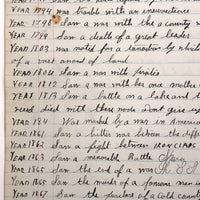 YEAR 1794 was trouble with an insurrections
YEAR 1798 Saw a war with the a country
YEAR 1799 Saw a death of a great leader
YEAR 1803 was noted for a transation by which
of a vast amount of land
YEAR 1804 Saw a war with pirates
YEAR 1812 Saw a war with be one mother
YEAR 1813 Saw a battle on a lake and the
need died with these words dont give up
YEAR 184 Was marked by a war in American
YEAR 1861 Saw a bitter war between the diffe
YEAR 1862 Saw a fight between IRON CLADS
YEAR 1863 Saw a memorable Battle
YEAR 1865 Saw the end of a war
YEAR 1865 Saw the murder of a famous man in
YEAR 1867 Saw the purchas of a Cold country